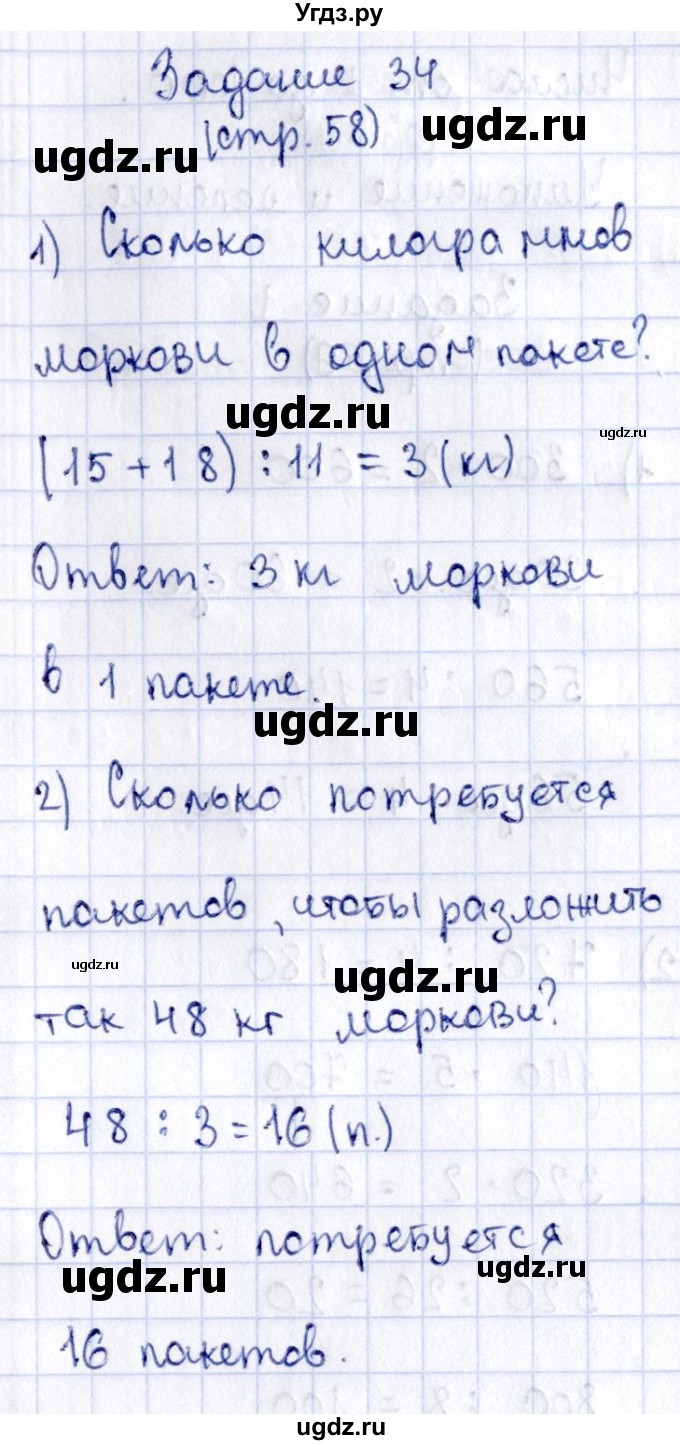 Угдз.ру
Задание 34
ugdz.ru (стр. 58) ugdz.ru
1) Сколько килограммов
моркови в одном пакете?
ugdz.ru
ugdz.ru
(15 + 18) : 11 = 3 (кг)
Ответ: 3 кг моркови
в 1 пакете.
ugdz.ru
2) Сколько потребуется
пакетов, чтобы разложить
ugdz.ru ugdz.ru
так 48 кг моркови?
48 : 3 = 16 (п.)
Ответ: потребуется
ugdz.ru ugdz.ru
16 пакетов.
ugdz.ru